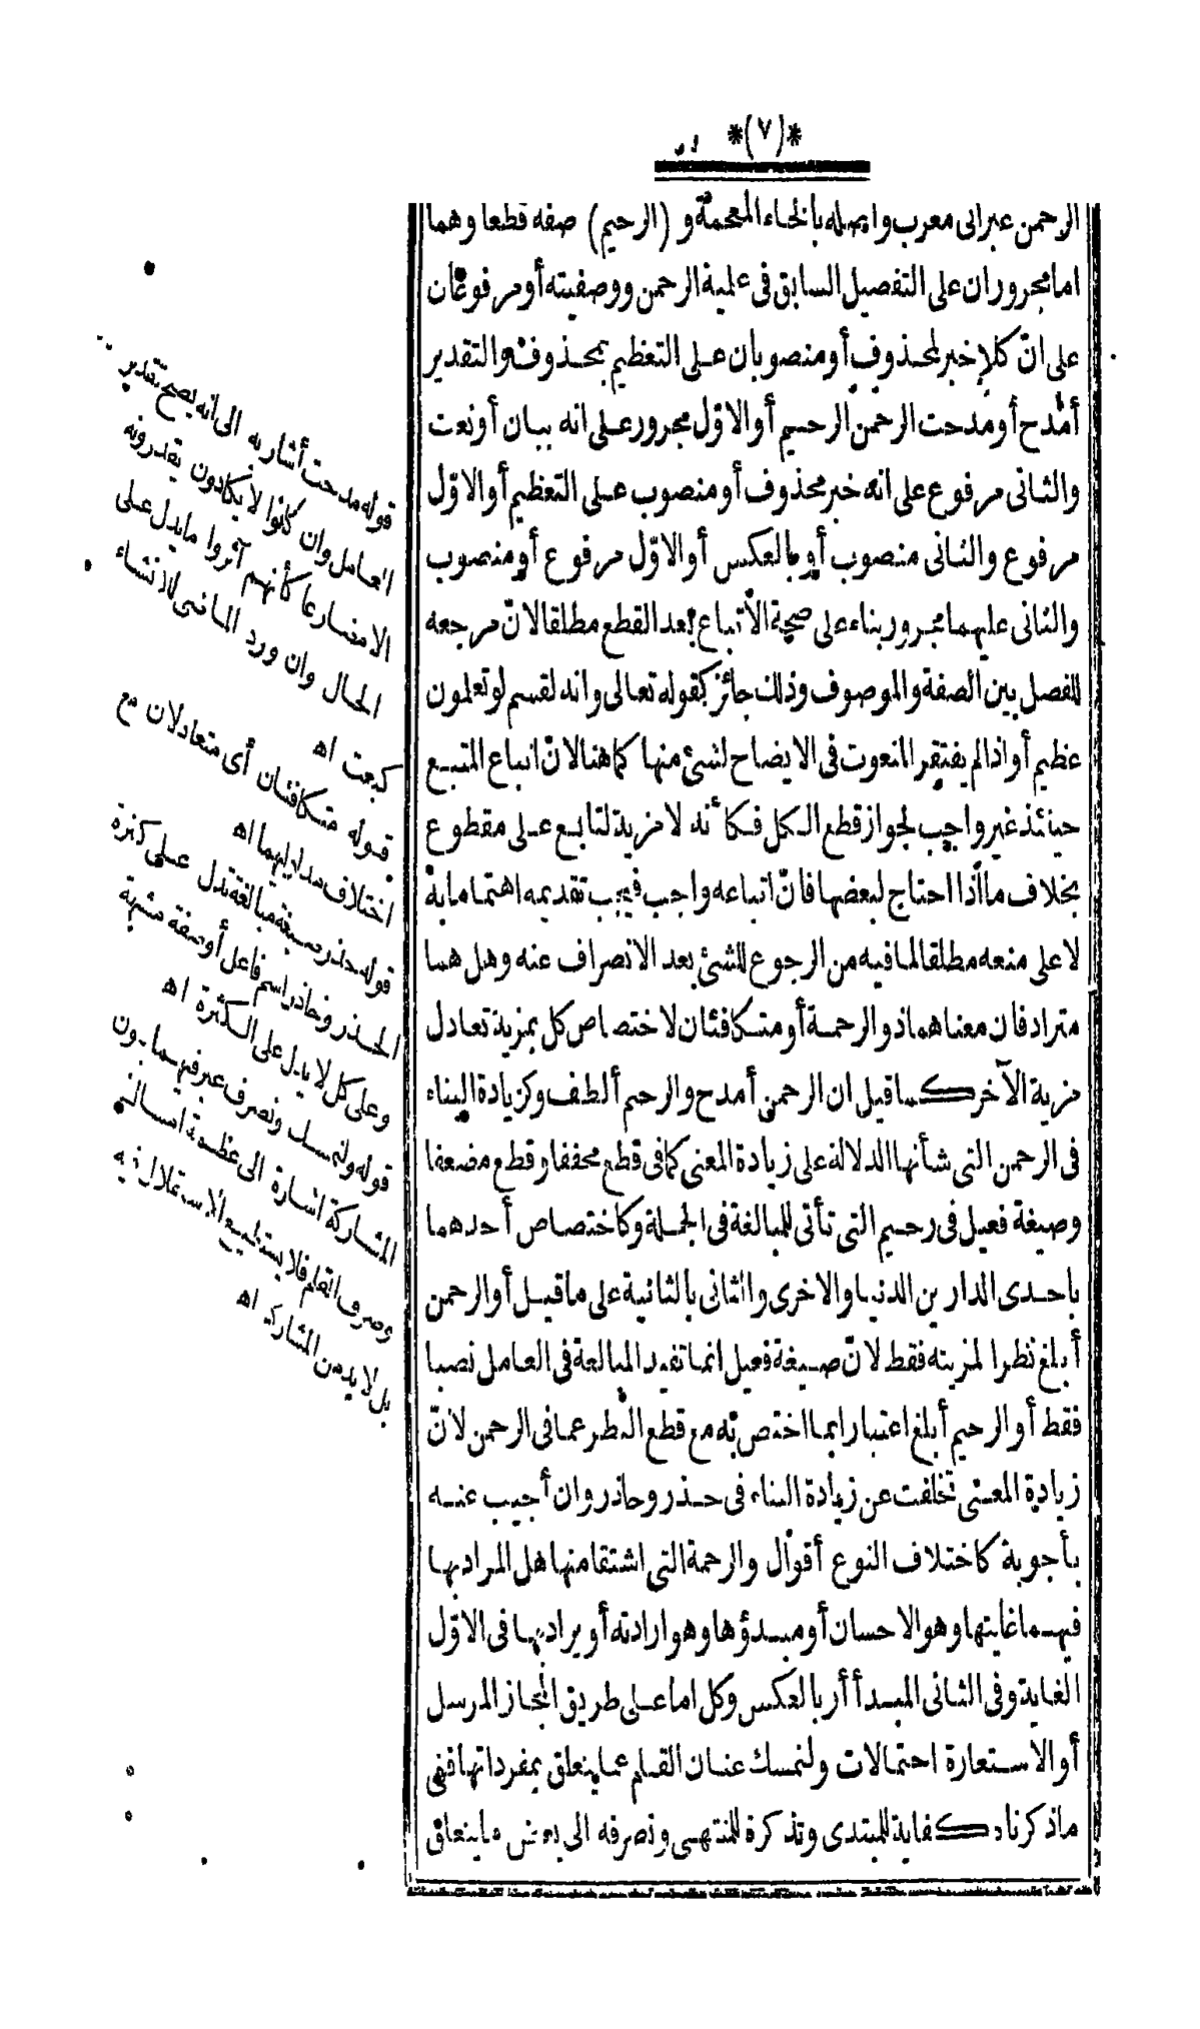 *(٧)*
الرحمن عبرانى معرب وأصله بالخاء المعجمة و (الرحيم) صفة قطعا وهما
اما مجروران على التفصيل السابق فى علمية الرحمن ووصفيته أو مرفوعان
على انّ كلا خبر لمحذوف أو منصوبان على التعظيم بمحذوف والتقدير
أمدح أو مدحت الرحمن الرحيم أو الاوّل مجرور على انه بيان أو نعت
والثانى مرفوع على انه خبر محذوف أو منصوب على التعظيم أو الاوّل
مرفوع والثانى منصوب أو بالعكس أو الاوّل مرفوع أو منصوب
والثانى عليهما مجرور بناء على صحة الاتباع بعد القطع مطلقا لانّ مرجعه
للفصل بين الصفة والموصوف وذلك جائز كقوله تعالى وانه لقسم لو تعلمون
عظيم أو اذا لم يفتقر المنعوت فى الايضاح لشئ منها كما هنا لانّ اتباع المتبع
حينئذ غير واجب لجواز قطع الكل فكأنه لا مزية لتابع على مقطوع
بخلاف ما اذا احتاج لبعضها فانّ اتباعه واجب فيجب تقديمه اهتماما به
لا على منعه مطلقا لما فيه من الرجوع للشئ بعد الانصراف عنه وهل هما
مترادفان معناهما ذو الرحمة أو متكافئان لاختصاص كل بمزية تعادل
مزية الآخر كما قيل ان الرحمن أمدح والرحيم ألطف وكزيادة البناء
فى الرحمن التى شأنها الدلالة على زيادة المعنى كما فى قطع مخففا وقطع مضعفا
وصيغة فعيل فى رحيم التى تأتى للمبالغة فى الجملة وكاختصاص أحدهما
باحدى الدارين الدنيا والاخرى والثانى بالثانية على ما قيل أو الرحمن
أبلغ نظرا لمزيته فقط لانّ صيغة فعيل انما تفيد المبالغة فى العامل نصبا
فقط أو الرحيم أبلغ اعتبارا بما اختص به مع قطع النظر عما فى الرحمن لانّ
زيادة المعنى تخلفت عن زيادة البناء فى حذر وحاذر وان أجيب عنه
بأجوبة كاختلاف النوع أقوال والرحمة التى اشتقا منها هل المراد بها
فيهما غايتها وهو الاحسان أو مبدؤها وهو ارادته أو يراد بها فى الاوّل
الغاية وفى الثانى المبدأ أو بالعكس وكل اما على طريق المجاز المرسل
أو الاستعارة احتمالات ولنمسك عنان القلم عما يتعلق بمفرداتها ففى
ما ذكرناه كفاية للمبتدى وتذكرة للمنتهى ونصرفه الى بعض ما يتعلق
قوله مدحت أشار به الى انه يصح تقدير
العامل وان كانوا لا يكادون يقدرونه
الا مضارعا كأنهم آثروا ما يدل على
الحال وان ورد الماضى للانشاء
كبعت اه
قوله متكافئان أى متعادلان مع
اختلاف مدلوليهما اه
قوله حذر صيغة مبالغة تدل على كثرة
الحذر وحاذر اسم فاعل أو صفة مشبهة
وعلى كل لا يدل على الكثرة اه
قوله ولنمسك ونصرف عبر فيهما بنون
المشاركة اشارة الى عظمة امساك
وصرف القلم فلا يستطيع الاستقلال به
بل لا بد من المشاركة اه